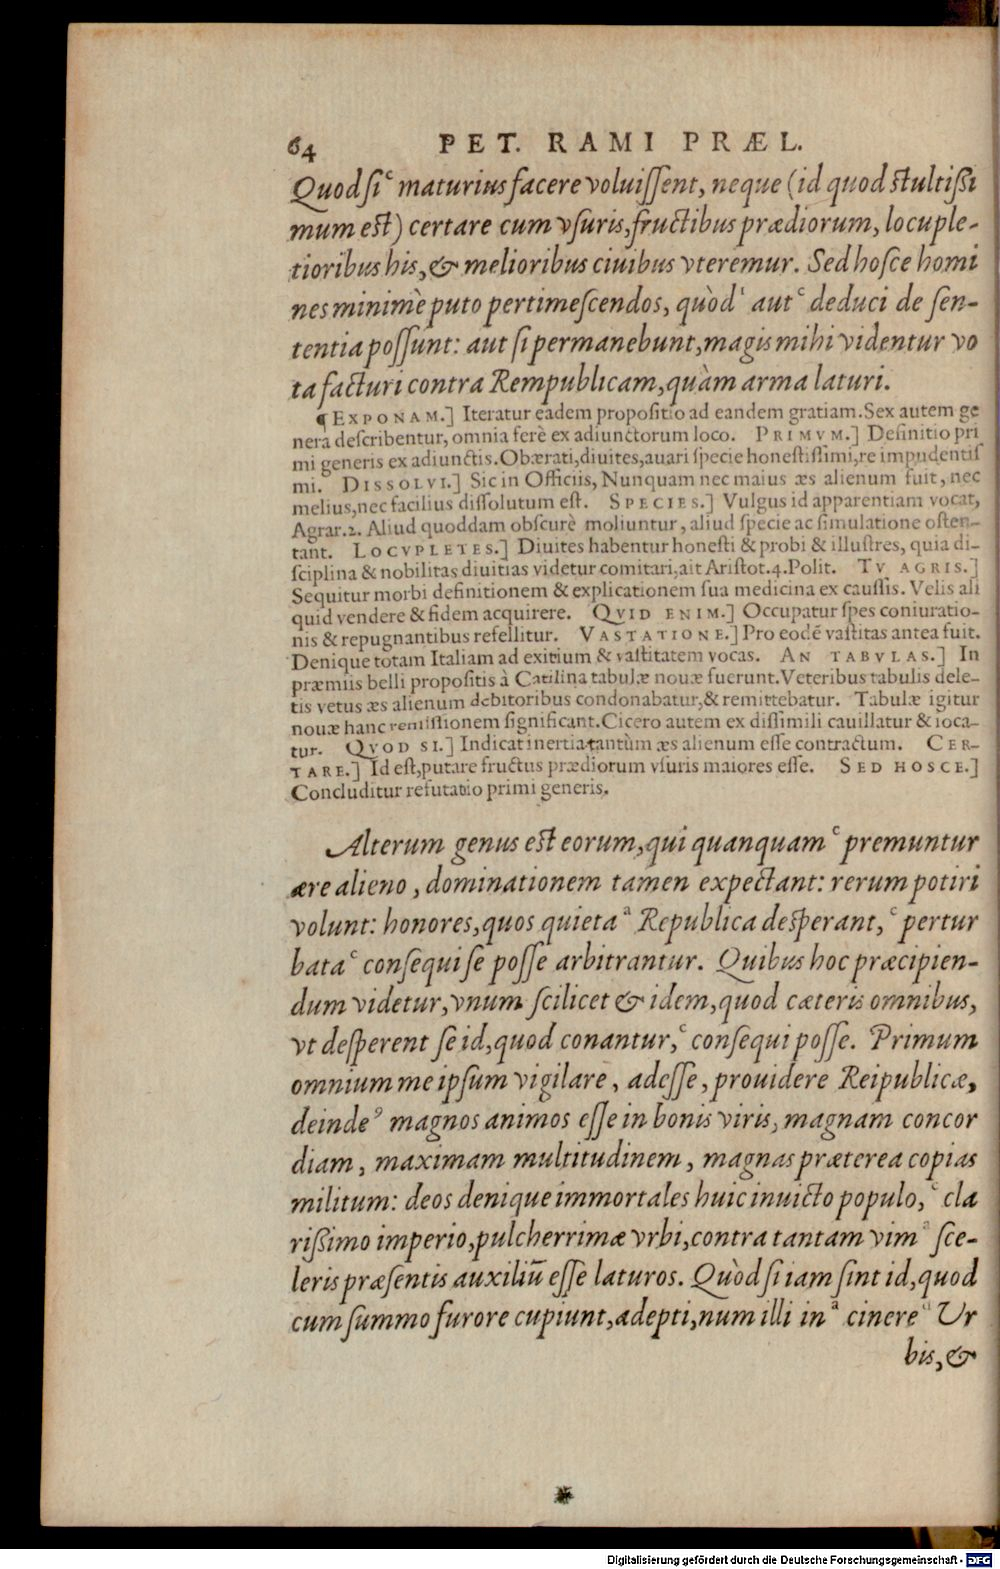 64 PET. RAMI PRÆL.
Quod siᶜ maturius facere voluissent, neque (id quod stultißi
mum est) certare cum vsuris, fructibus prædiorum, locuple-
tioribus his, & melioribus ciuibus vteremur. Sed hosce homi
nes minimè puto pertimescendos, quòdⁱ autᶜ deduci de sen-
tentia possunt: aut si permanebunt, magis mihi videntur vo
ta facturi contra Rempublicam, quàm arma laturi.
¶ EXPONAM.] Iteratur eadem propositio ad eandem gratiam. Sex autem ge
nera describentur, omnia ferè ex adiunctorum loco. PRIMVM.] Definitio pri
mi generis ex adiunctis. Obærati, diuites, auari specie honestissimi, re impudentis
mi. DISSOLVI.] Sic in Officiis, Nunquam nec maius æs alienum fuit, nec
melius, nec facilius dissolutum est. SPECIES.] Vulgus id apparentiam vocat,
Agrar. 2. Aliud quoddam obscurè moliuntur, aliud specie ac simulatione osten-
tant. LOCVPLETES.] Diuites habentur honesti & probi & illustres, quia di-
sciplina & nobilitas diuitias videtur comitari, ait Aristot. 4. Polit. TV AGRIS.]
Sequitur morbi definitionem & explicationem sua medicina ex caussis. Velis ali
quid vendere & fidem acquirere. QVID ENIM.] Occupatur spes coniuratio-
nis & repugnantibus refellitur. VASTATIONE.] Pro eodē vastitas antea fuit.
Denique totam Italiam ad exitium & vastitatem vocas. AN TABVLAS.] In
præmiis belli propositis à Catilina tabulæ nouæ fuerunt. Veteribus tabulis dele-
tis vetus æs alienum debitoribus condonabatur, & remittebatur. Tabulæ igitur
nouæ hanc remissionem significant. Cicero autem ex dissimili cauillatur & ioca-
tur. QVOD SI.] Indicat inertia tantùm æs alienum esse contractum. CER-
TARE.] Id est, putare fructus prædiorum vsuris maiores esse. SED HOSCE.]
Concluditur refutatio primi generis.
Alterum genus est eorum, qui quanquamᶜ premuntur
ære alieno, dominationem tamen expectant: rerum potiri
volunt: honores, quos quietaᵃ Republica desperant,ᶜ pertur
bataᶜ consequi se posse arbitrantur. Quibus hoc præcipien-
dum videtur, vnum scilicet & idem, quod cæteris omnibus,
vt desperent se id, quod conantur,ᶜ consequi posse. Primum
omnium me ipsum vigilare, adesse, prouidere Reipublicæ,
deinde⁹ magnos animos esse in bonis viris, magnam concor
diam, maximam multitudinem, magnas præterea copias
militum: deos denique immortales huic inuicto populo,ᶜ cla
rißimo imperio, pulcherrimæ vrbi, contra tantam vimᵃ sce-
leris præsentis auxiliū esse laturos. Quòd si iam sint id, quod
cum summo furore cupiunt, adepti, num illi inᵃ cinereᵃ Ur
bis, &
Digitalisierung gefördert durch die Deutsche Forschungsgemeinschaft - DFG